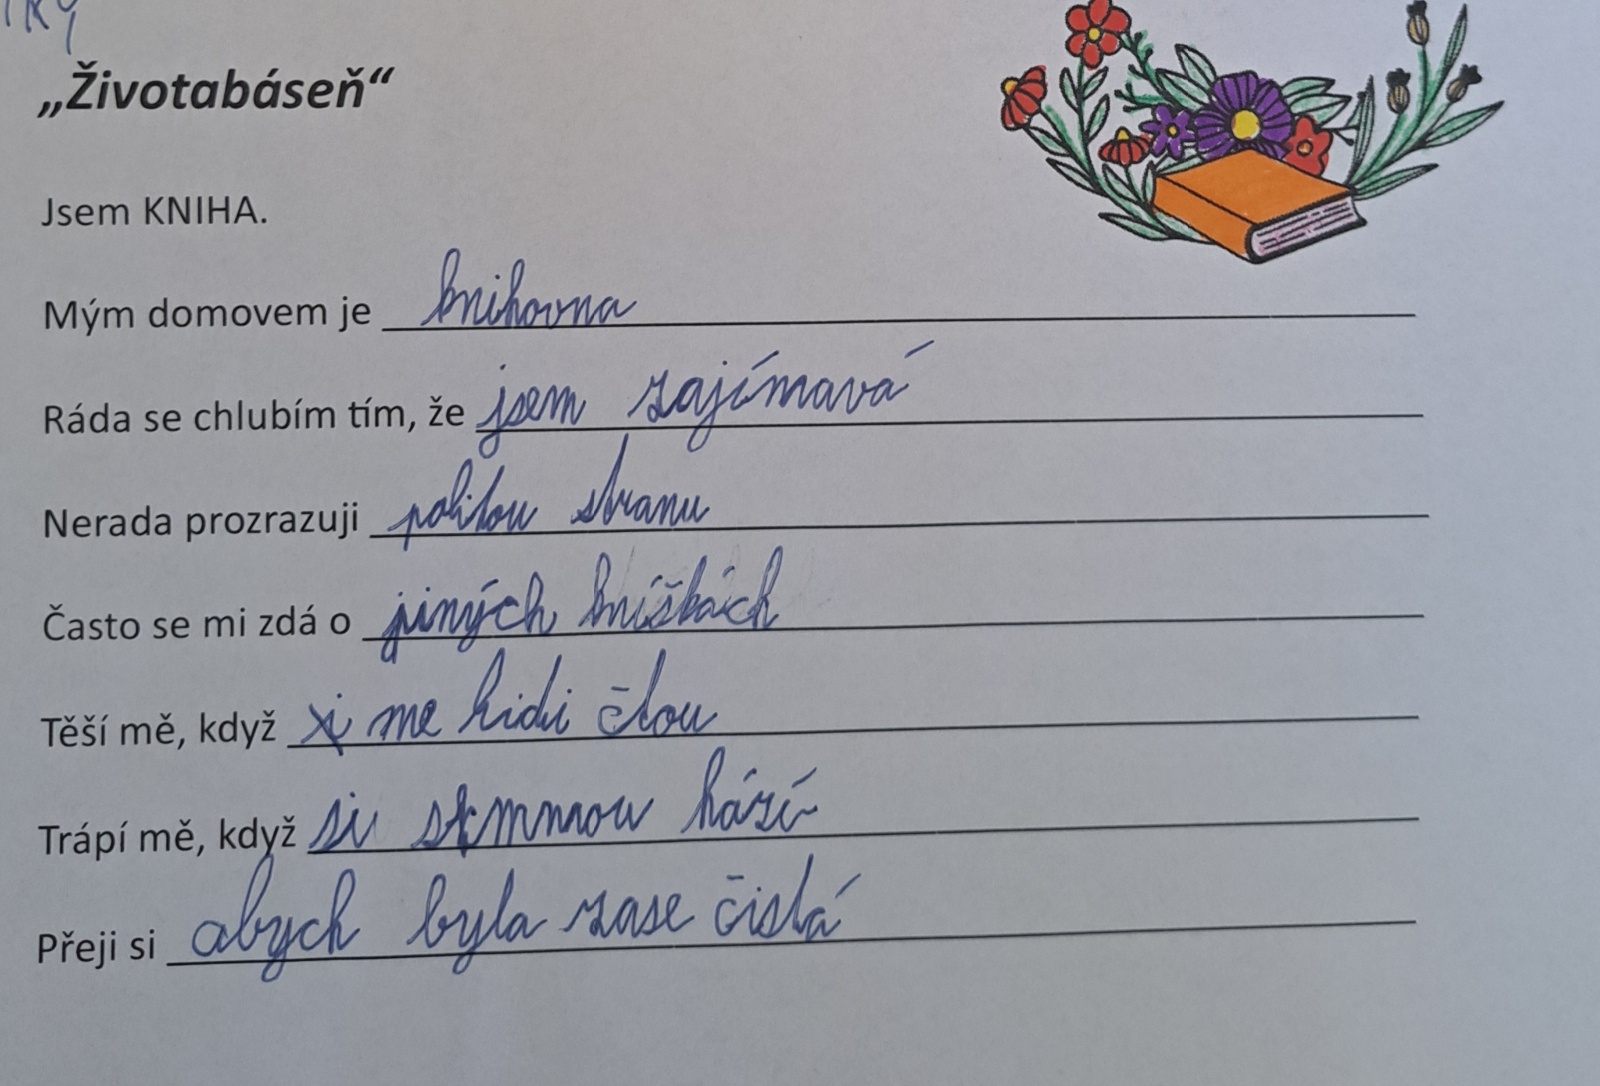 „Životabáseň“
Jsem KNIHA.
Mým domovem je knihovna
Ráda se chlubím tím, že jsem zajímavá
Nerada prozrazuji politou stranu
Často se mi zdá o jiných knížkách
Těší mě, když me lidi čtou
Trápí mě, když si semnou hází
Přeji si abych byla zase čistá